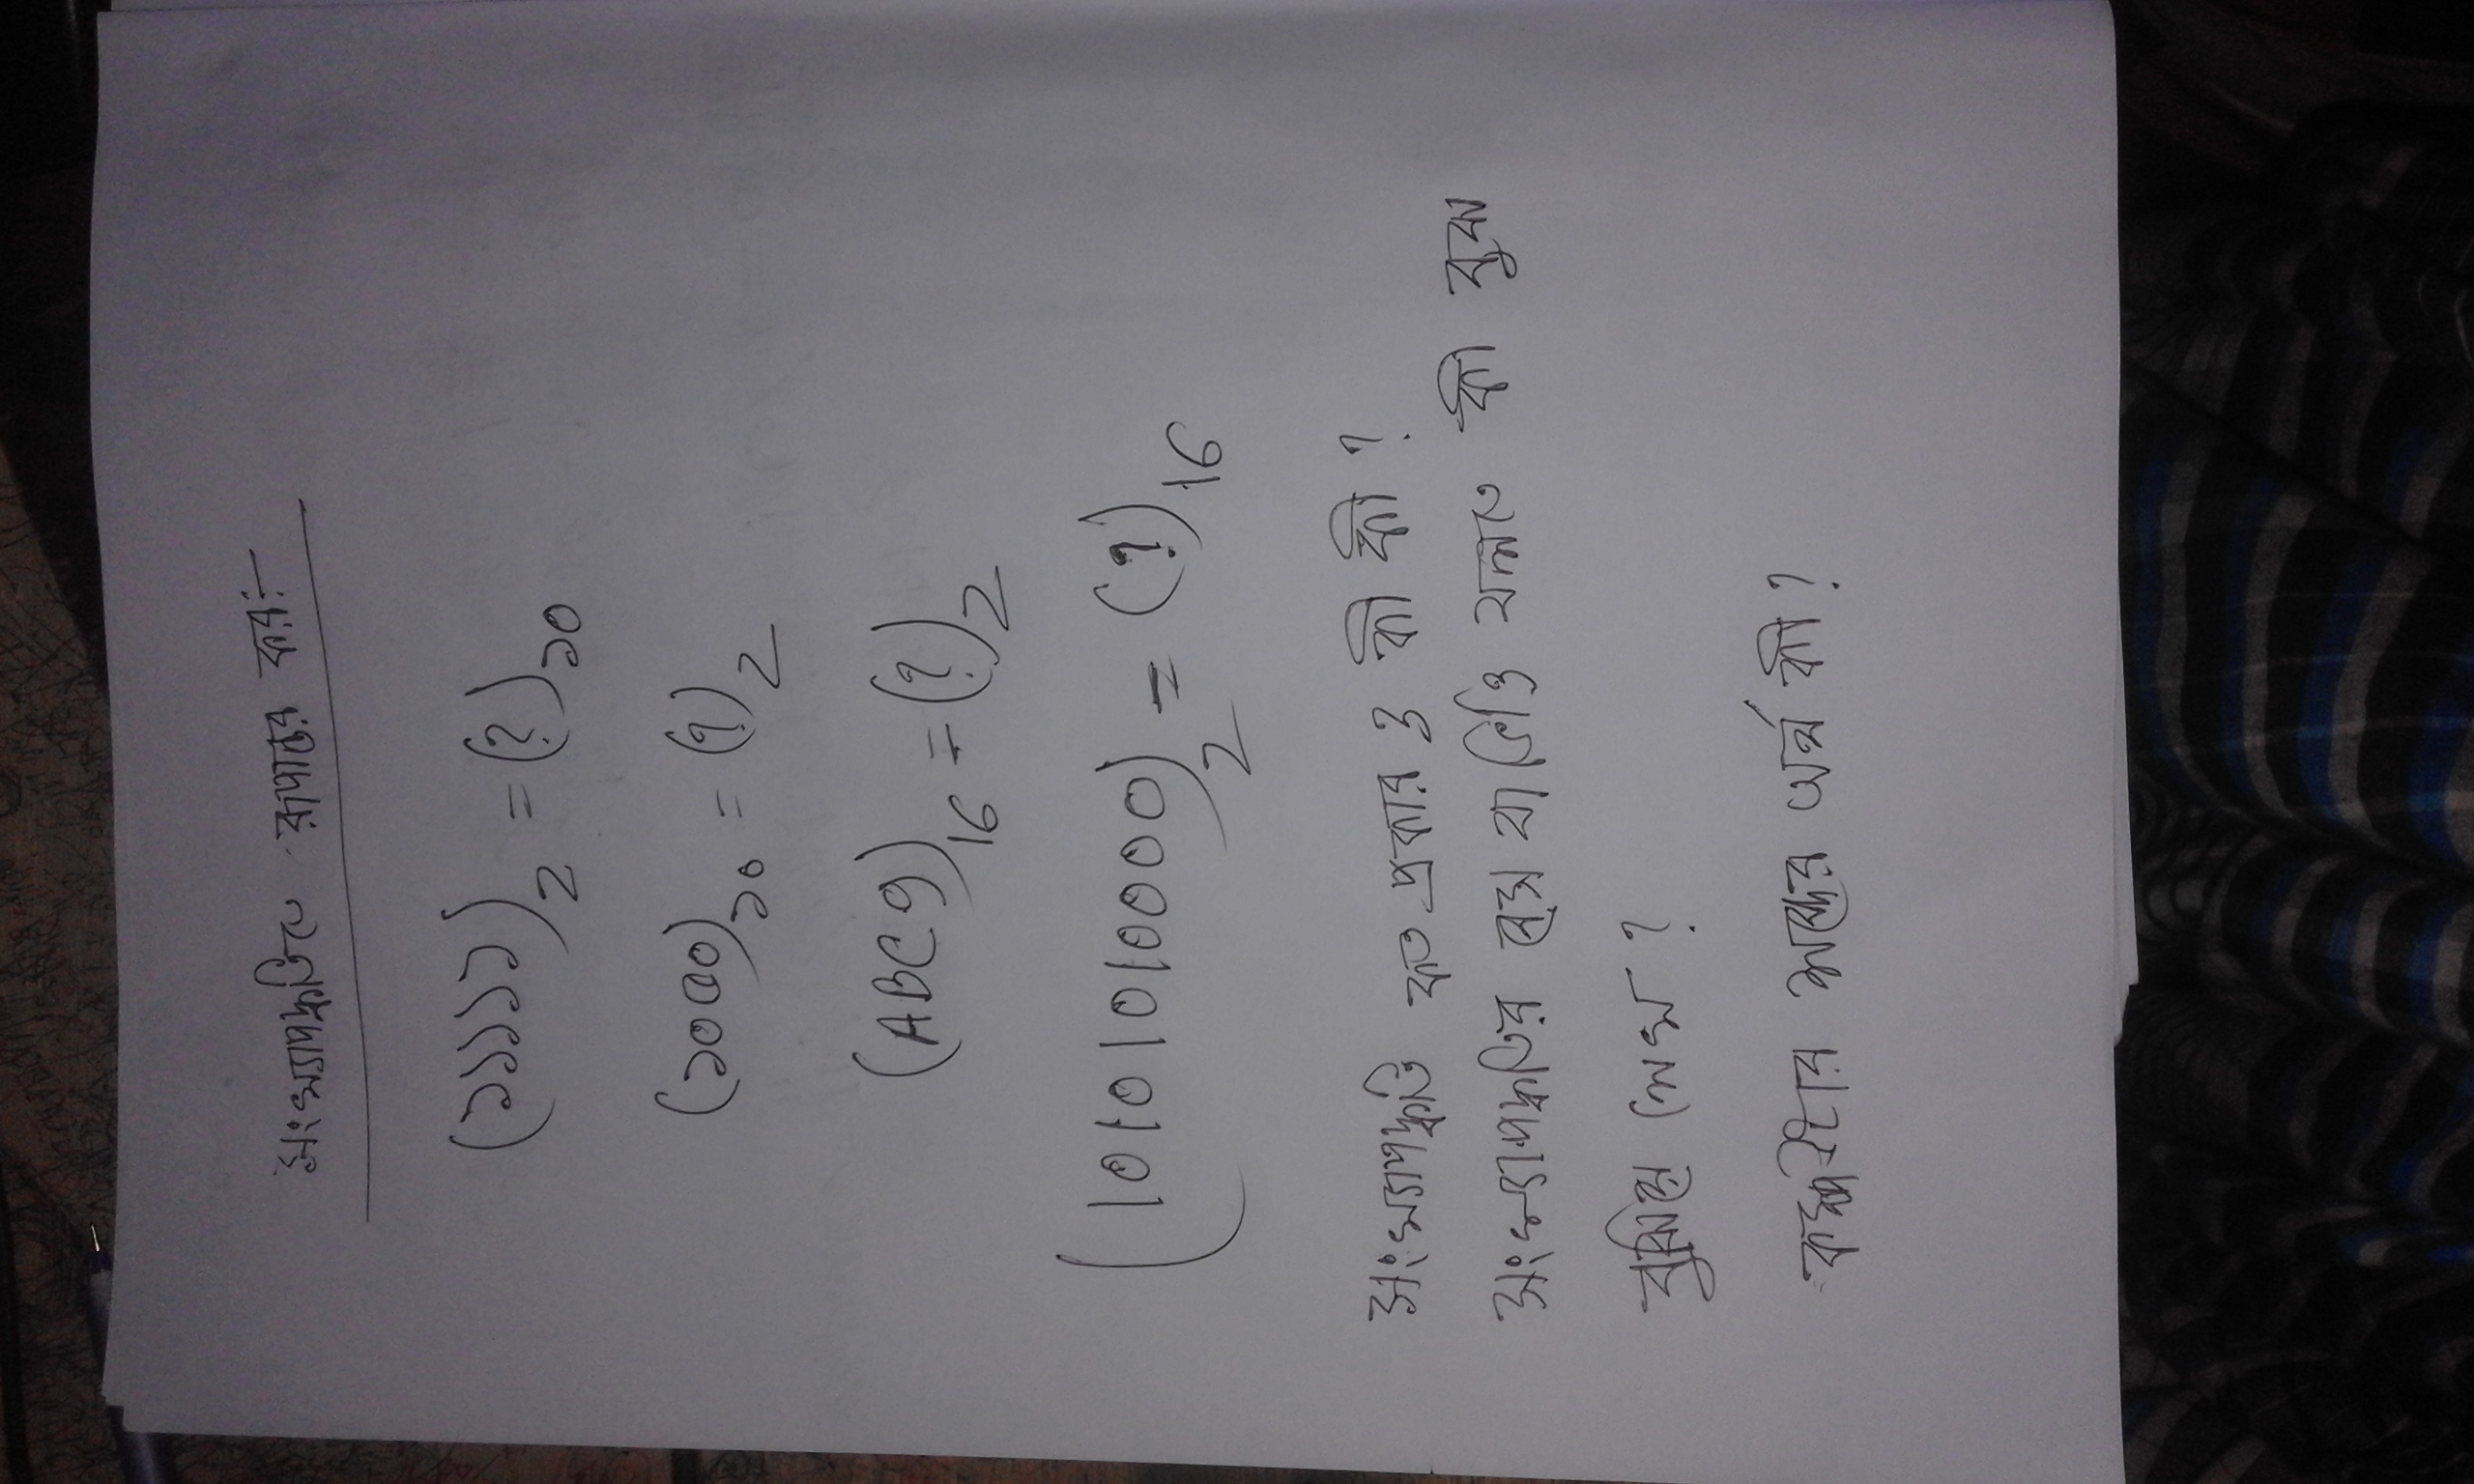 সংখ্যাপদ্ধতিতে রূপান্তর কর:-
(১১১১১)2 = (?)১০
(১০৫০)১০ = (?)2
(ABC9)16 = (?)2
(10101010000)2 = (?)16
সংখ্যাপদ্ধতি কত প্রকার ও কী কী ?
সংখ্যাপদ্ধতির বেস বা ভিত্তি বলতে কী বুঝ
বুঝিয়ে লেখ ?
কম্পিউটার শব্দের অর্থ কী ?